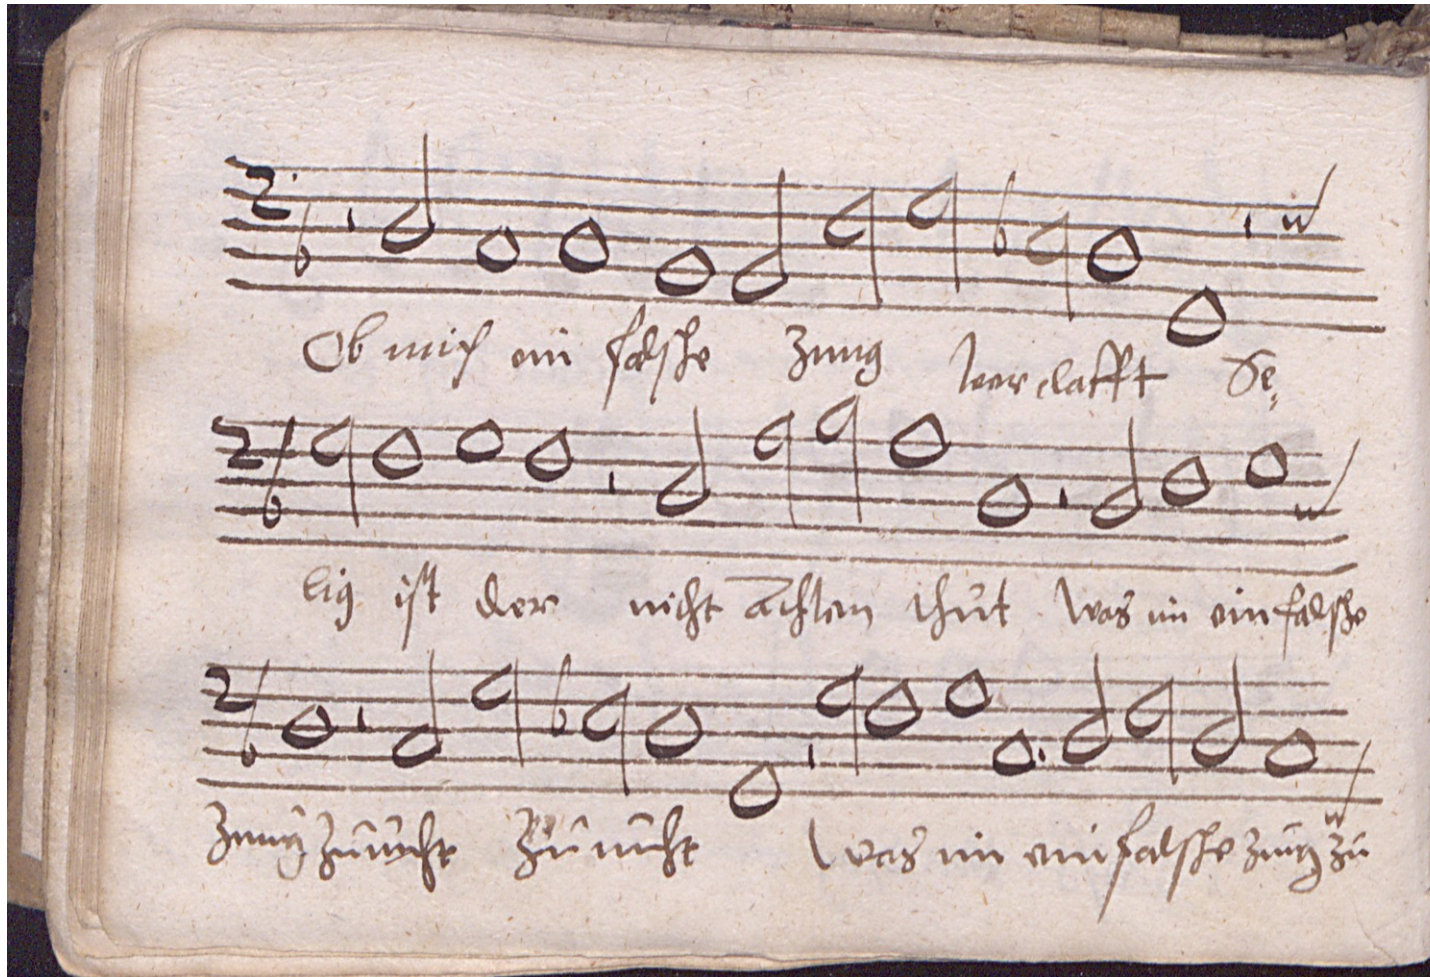 Ob mich ein falsche Zung verclafft Se⸗
lig ist der nicht achten thut Was im ein falsche
Zung zu nicht zu nicht Was im ein falsche Zung zu